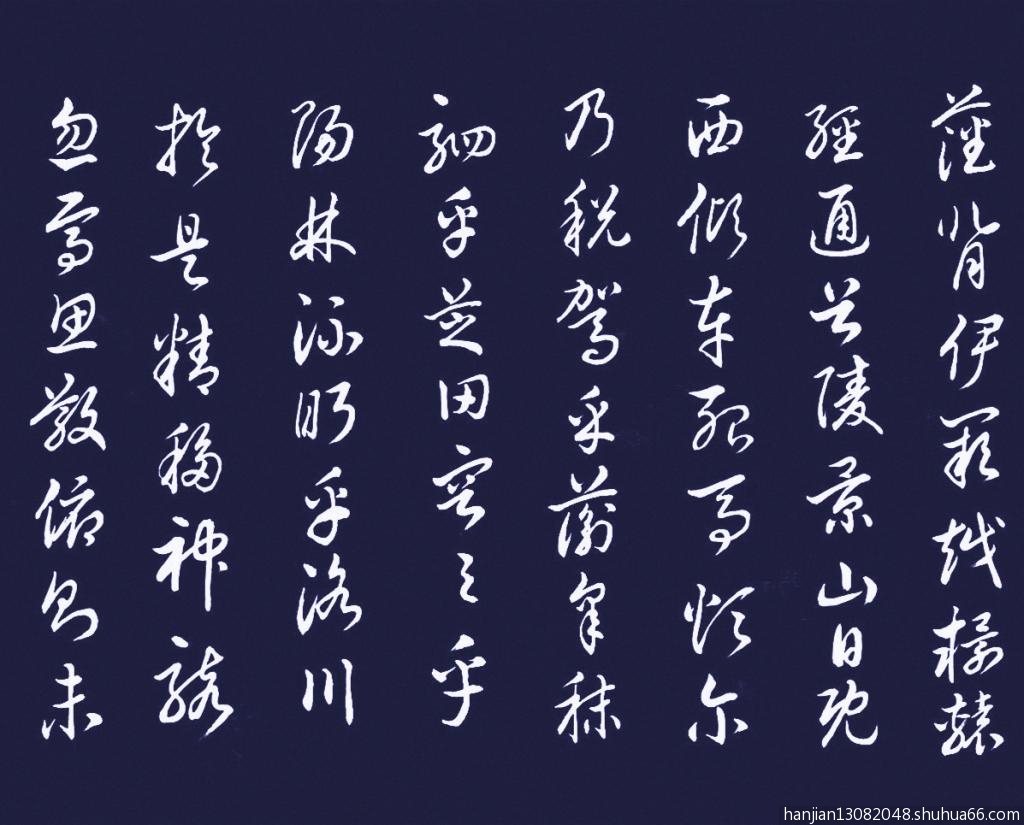 藩背伊闕越轘轅
經通谷陵景山日既
西傾車殆馬煩尔
乃稅駕乎蘅皋秣
駟乎芝田容與乎
陽林流眄乎洛川
於是精移神駭
忽焉思散俯則未
hanjian13082048.shuhua66.com